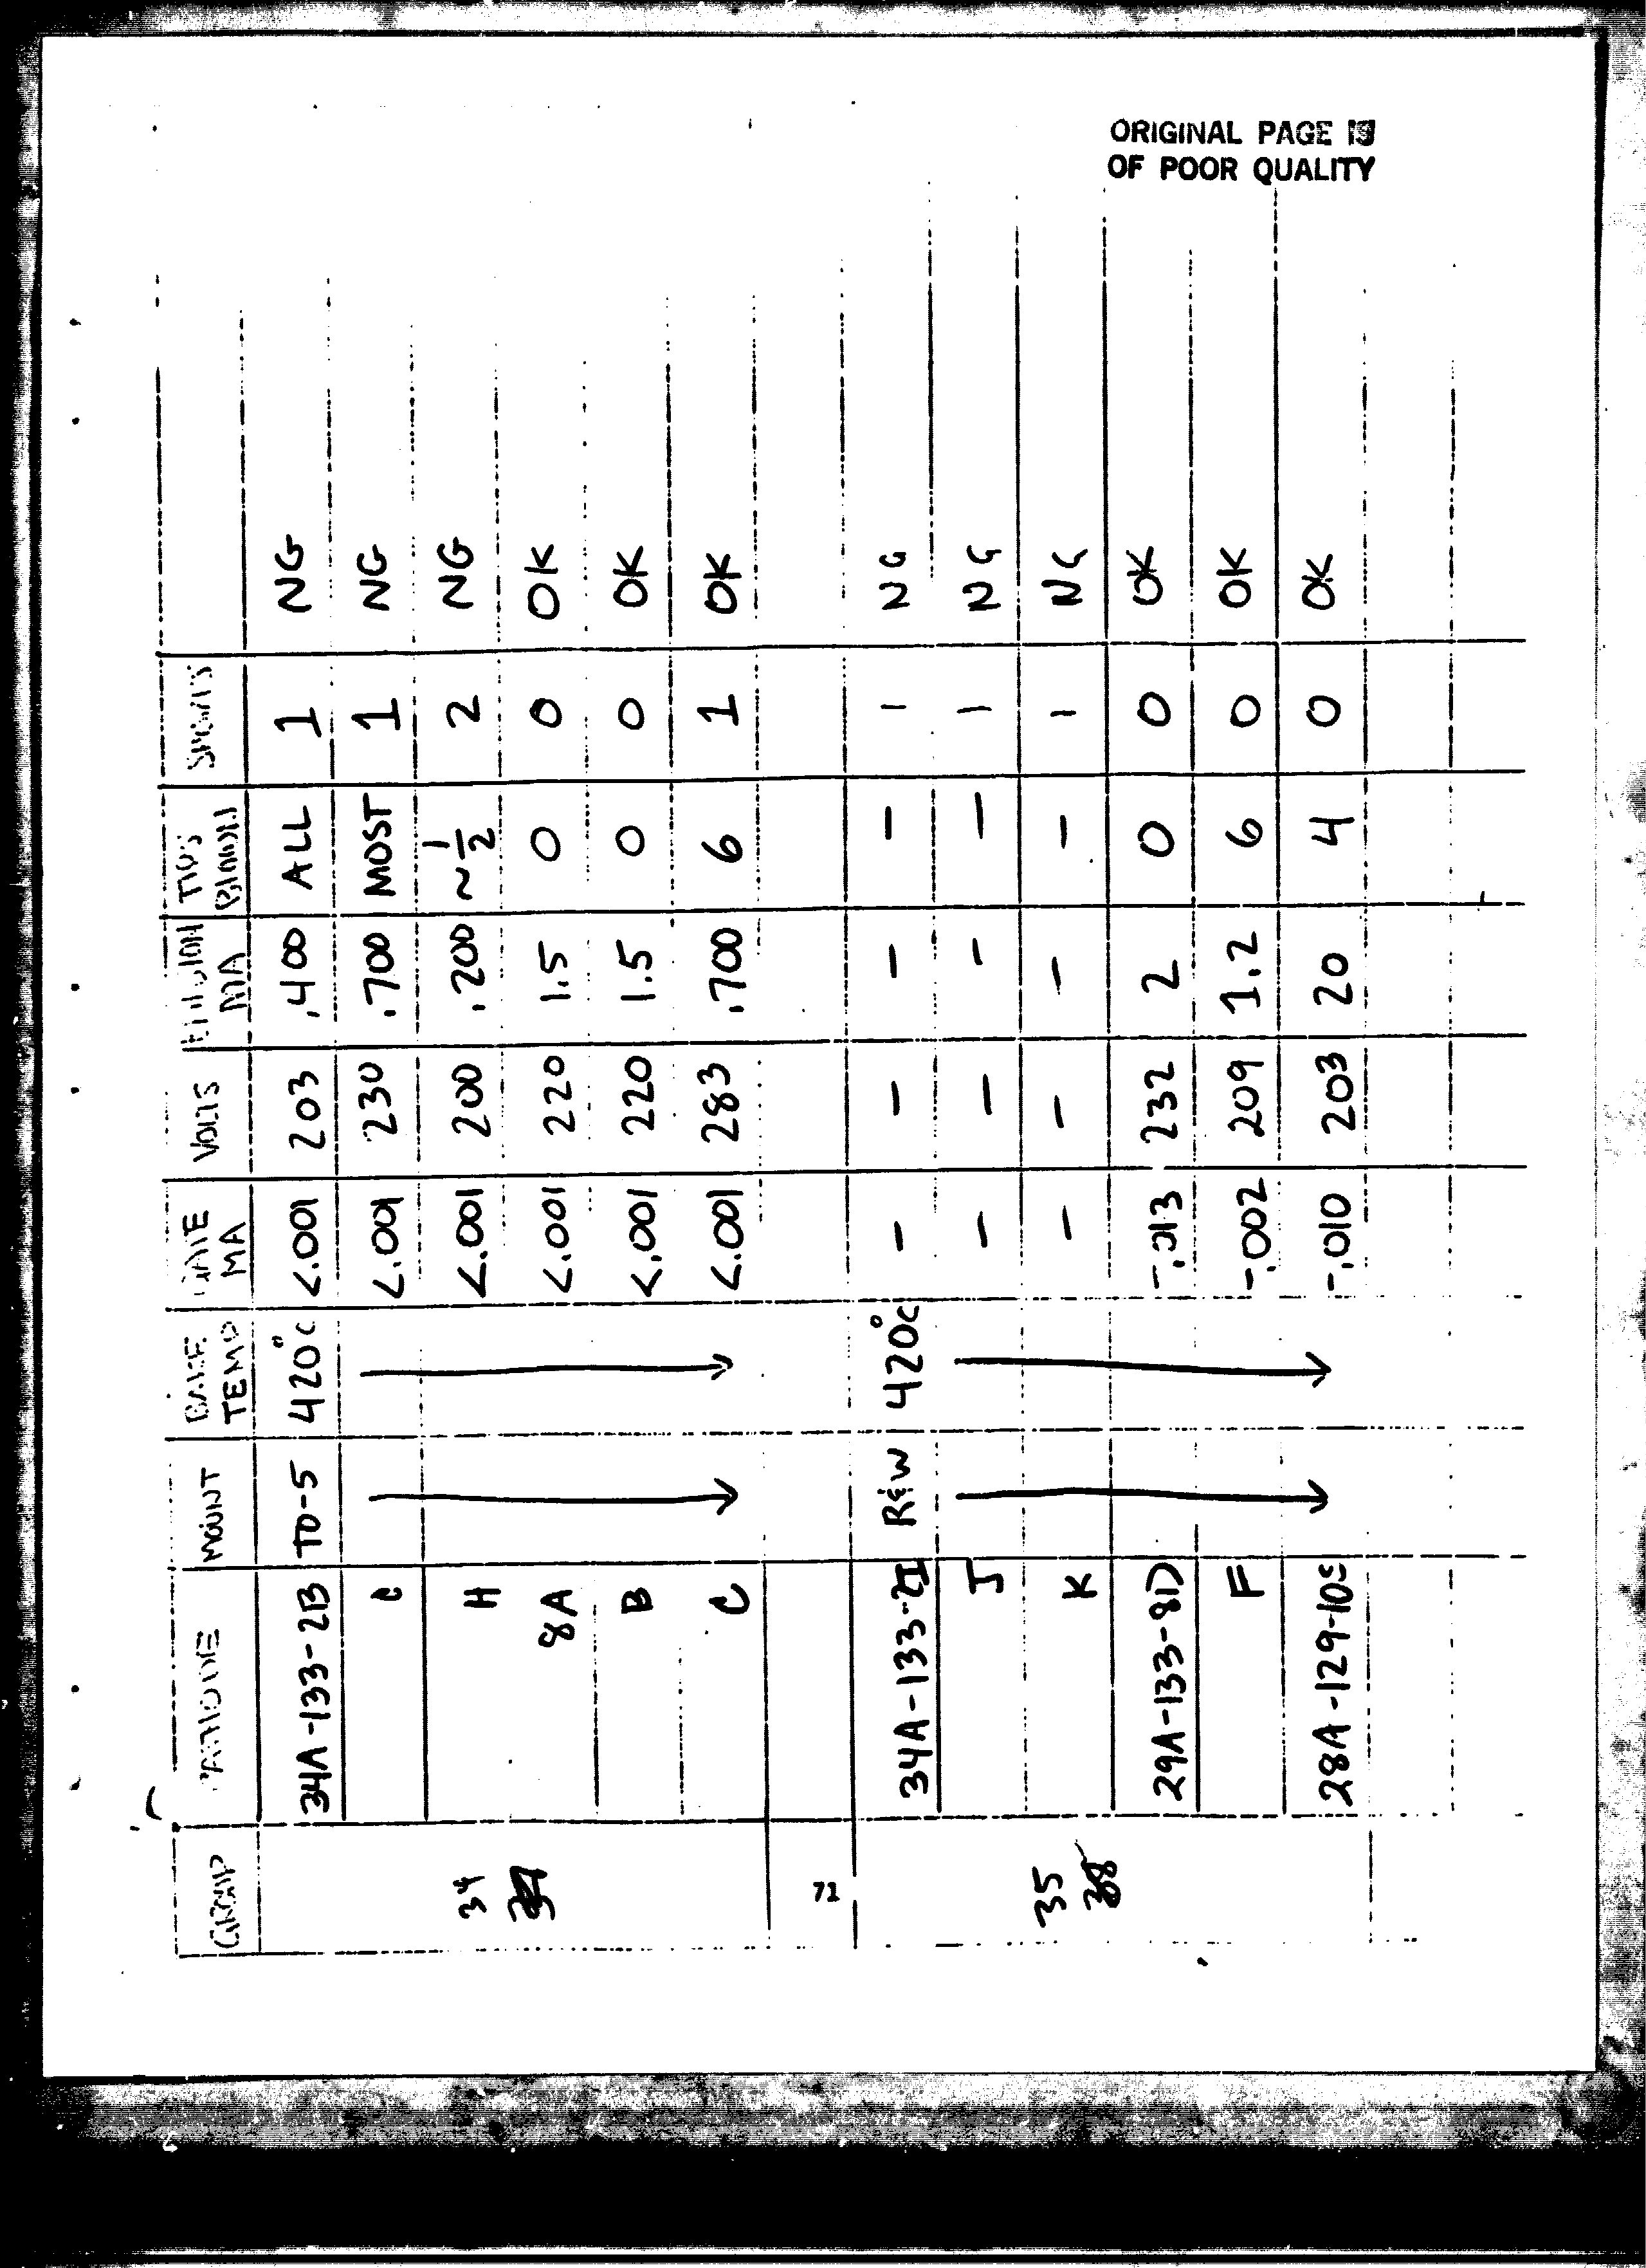 ORIGINAL PAGE IS
OF POOR QUALITY
GROUP CATHODE MOUNT BAKE TEMP GATE MA VOLTS EMISSION MA TIPS BLOWN SHORTS
34A-133-2B TO-5 420°C <.001 203 .400 ALL 1 NG
C <.001 230 .700 MOST 1 NG
34 H <.001 200 .200 ~1/2 2 NG
8A <.001 220 1.5 0 0 OK
B <.001 220 1.5 0 0 OK
C <.001 283 .700 6 1 OK
71
34A-133-2I R&W 420°C - - - - - NG
J - - - - - NG
35 K - - - - - NG
29A-133-8D -.013 232 2 0 0 OK
F -.002 209 1.2 6 0 OK
28A-129-10S -.010 203 20 4 0 OK